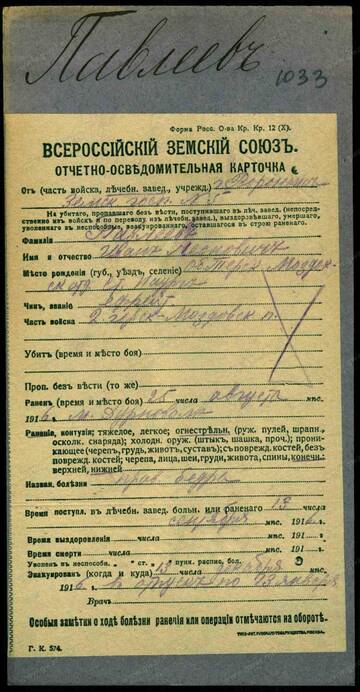 Павлеевъ
1033
Форма Росс. О-ва Кр. Кр. 12 (X).
ВСЕРОССІЙСКІЙ ЗЕМСКІЙ СОЮЗЪ.
ОТЧЕТНО-ОСВѢДОМИТЕЛЬНАЯ КАРТОЧКА
Отъ (часть войска, лѣчебн. завед., учрежд.)
Земск. госп. №
На убитаго, пропавшаго безъ вѣсти, поступившаго въ лѣч. заведен. (непосред-
ственно изъ войскъ и по переводу изъ др. лѣчебн. завед.), выздоровѣвшаго, умершаго,
уволеннаго въ неспособные, эвакуированнаго, оставшагося въ строю раненаго.
Фамилія
Имя и отчество Иванъ
Мѣсто рожденія (губ., уѣздъ, селеніе) Терск. Моздок-
ск. отд. ст. Наурск.
Чинъ, званіе
Часть войска 2 Горск-Моздокск п.
Убитъ (время и мѣсто боя)
Проп. безъ вѣсти (то же)
Раненъ (время и мѣсто боя) 25 числа августа мѣс.
191 6 м.
Раненія, контузія; тяжелое, легкое; огнестрѣльн. (руж. пулей, шрапн.,
осколк. снаряда); холодн. оруж. (штыкъ, шашка, проч.); прони-
кающее (черепъ, грудь, животъ, суставъ); съ поврежд. костей, безъ
поврежд. костей; черепа, лица, шеи, груди, живота, спины, конечн.:
верхней, нижней
Назван. болѣзни прав. бедра
Время поступ. въ лѣчебн. завед. больн. или раненаго 13
сентября мѣс. 191 6 г.
Время выздоровленія числа мѣс. 191 г.
Время смерти числа мѣс. 191 г.
Уволенъ въ неспособн. ст. пунк. распис. бол.
Эвакуированъ (когда и куда) 13 числа декабря мѣс.
191 6 въ отпускъ по 13 января
Врачъ
Особыя замѣтки о ходѣ болѣзни раненія или операціи отмѣчаются на оборотѣ.
Г. К. 574.
ТИПО-ЛИТ. РУССКАГО ТОВАРИЩЕСТВА, МОСКВА.